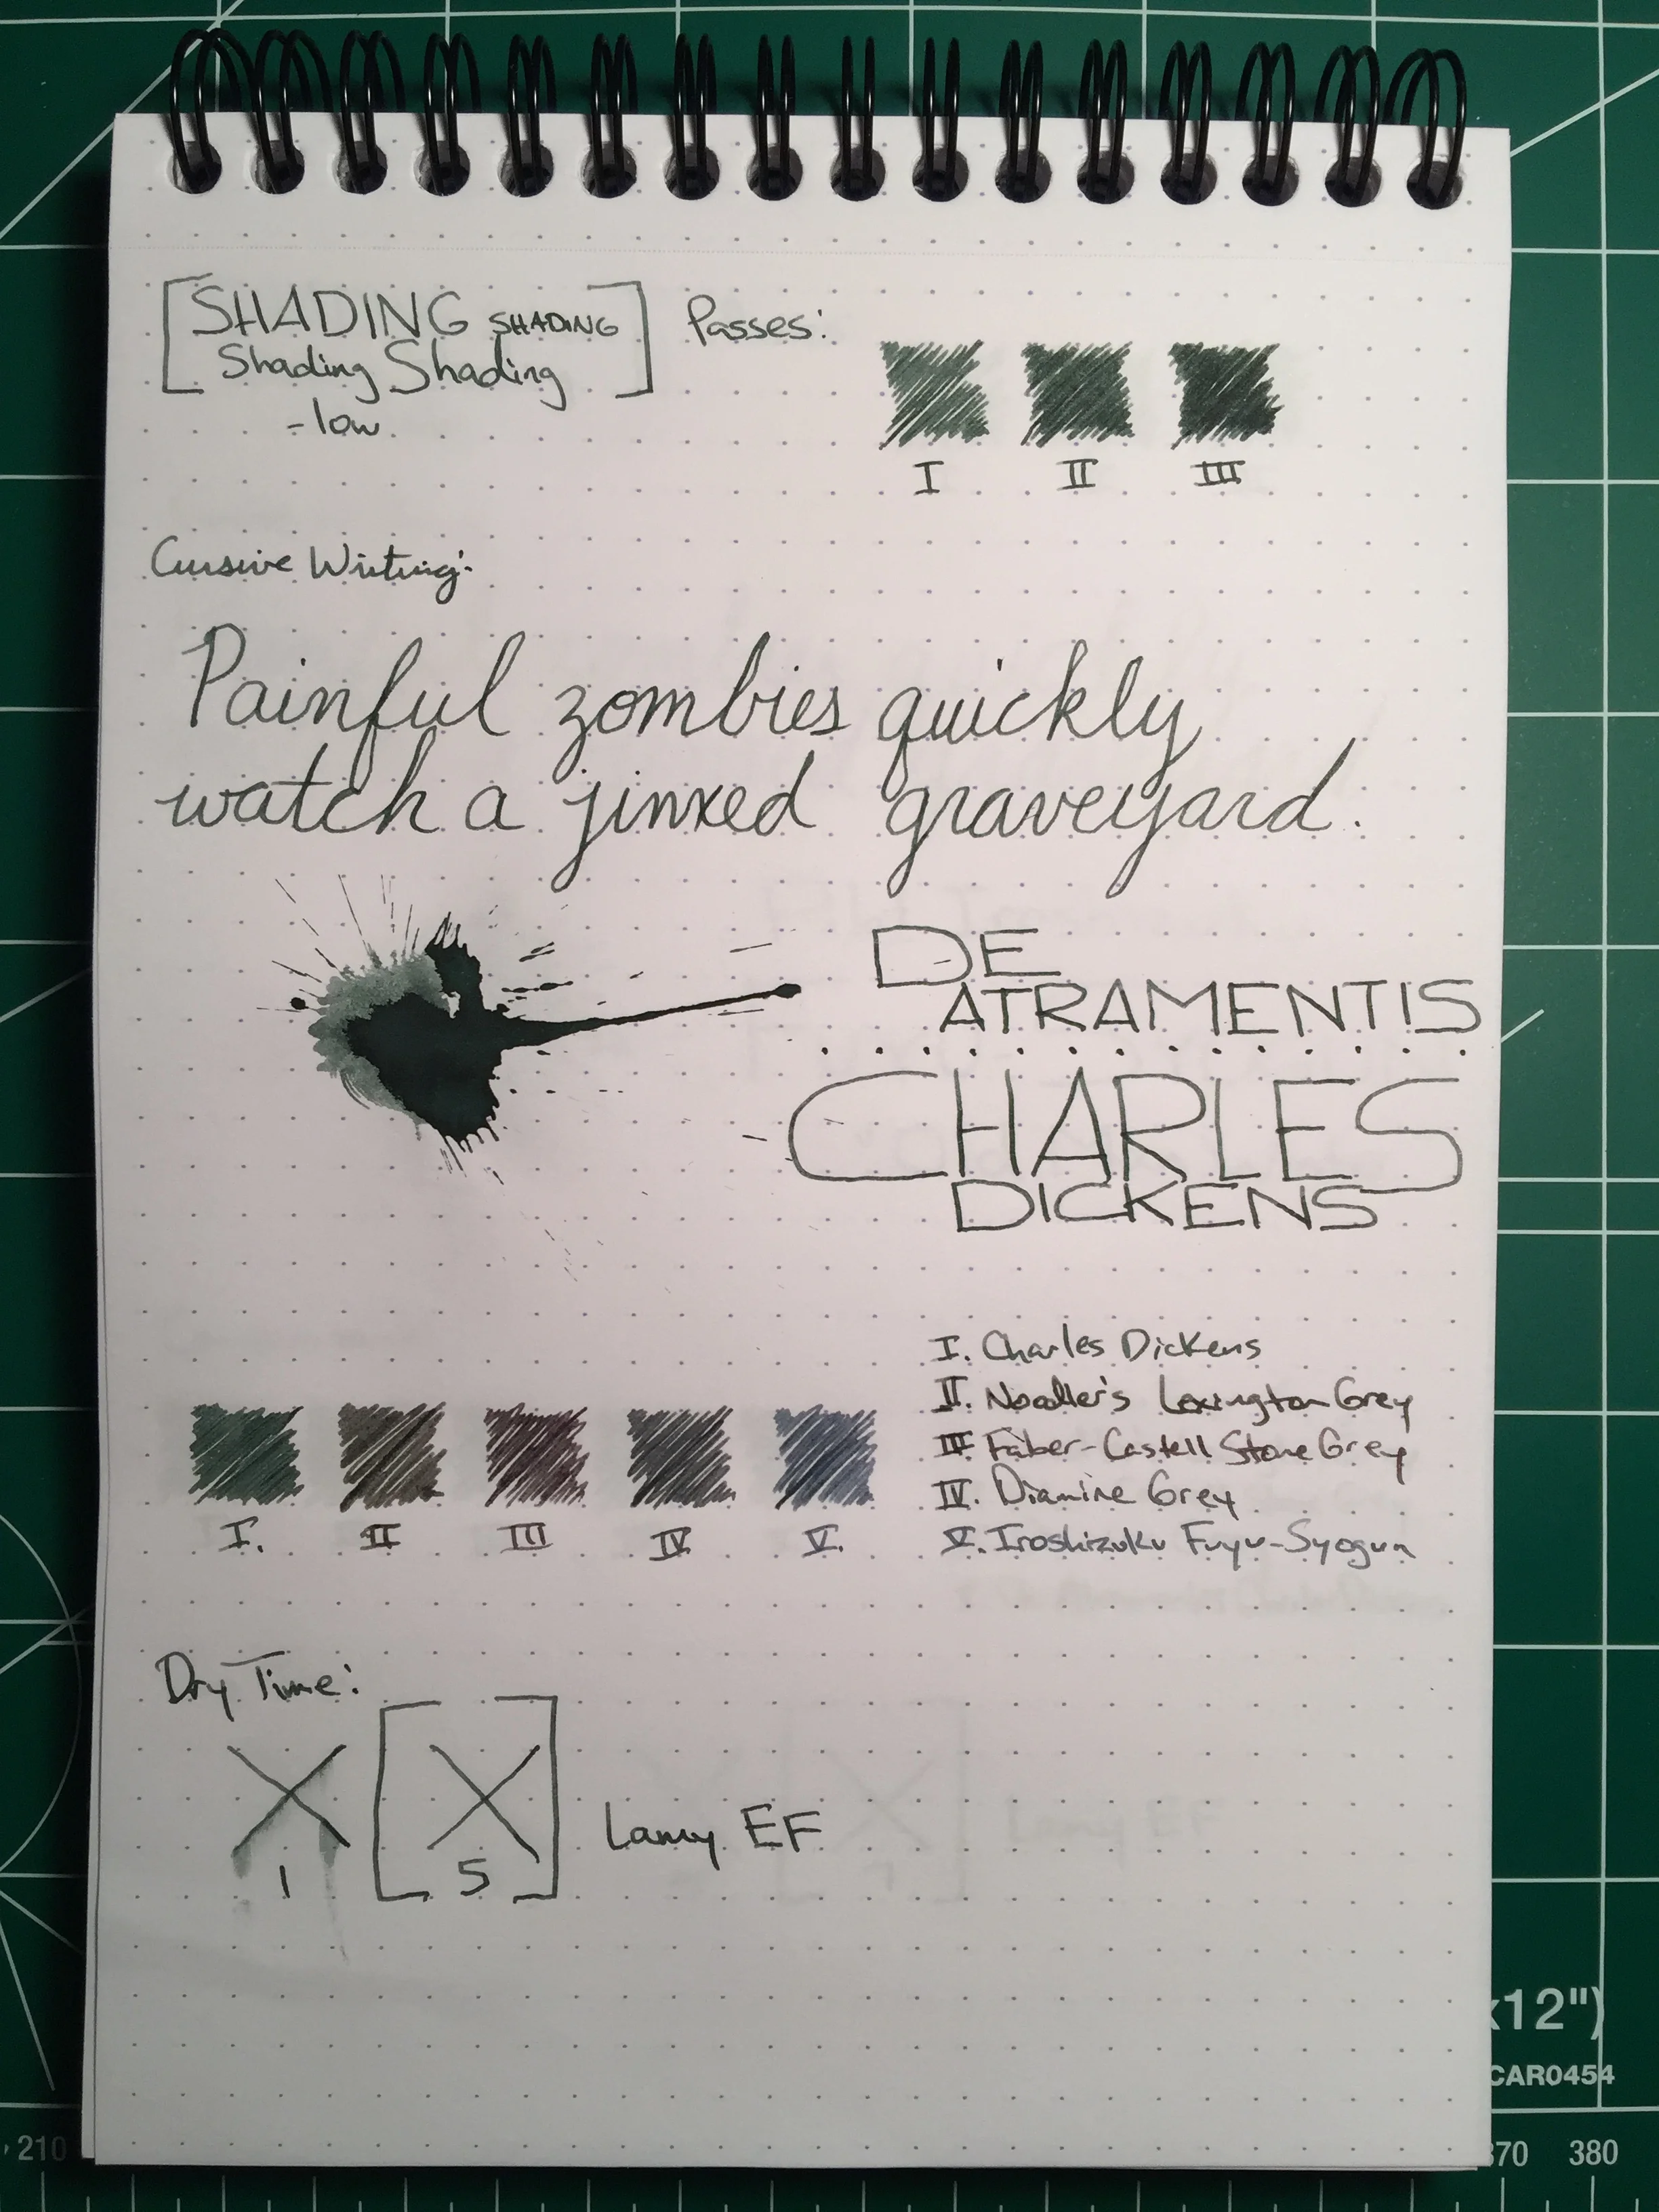 SHADING SHADING
Shading Shading
-low
Passes:
I II III
Cursive Writing:
Painful zombies quickly
watch a jinxed graveyard.
DE
ATRAMENTIS
CHARLES
DICKENS
I. Charles Dickens
II. Noodler's Lexington Grey
III. Faber-Castell Stone Grey
IV. Diamine Grey
V. Iroshizuku Fuyu-Syogun
I. II III IV V.
Dry Time:
1 5
Lamy EF
x12")
CAR0454
210
370 380